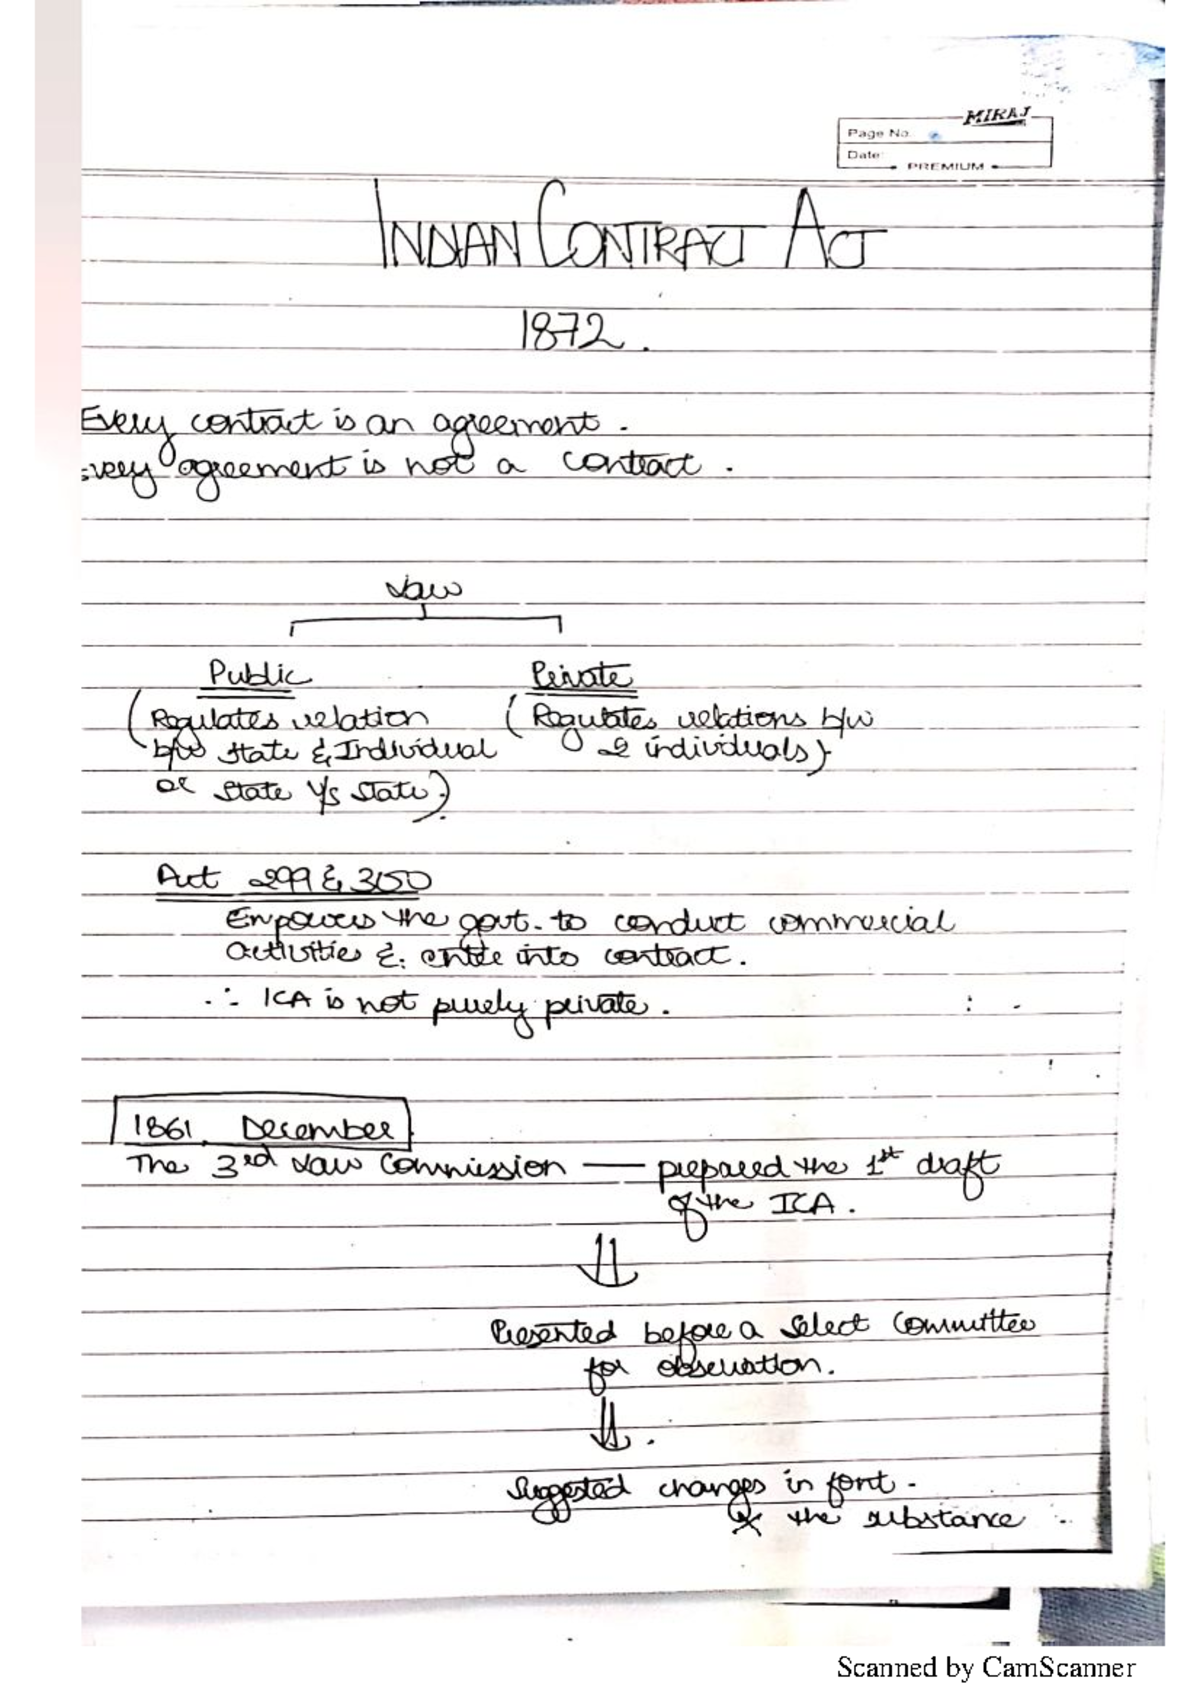 MIRAJ
Page No.
Date:
PREMIUM
INDIAN CONTRACT ACT
1872.
Every contract is an agreement.
Every agreement is not a contract.
Law
Public Private
(Regulates relation (Regulates relations b/w
b/w State & Individual 2 individuals)
or State v/s State).
Act 299 & 300
Empowers the govt. to conduct commercial
activities & enter into contract.
∴ ICA is not purely private.
1861, December
The 3rd Law Commission — prepared the 1st draft
of the ICA.
Presented before a Select Committee
for observation.
Suggested changes in font.
the substance
Scanned by CamScanner